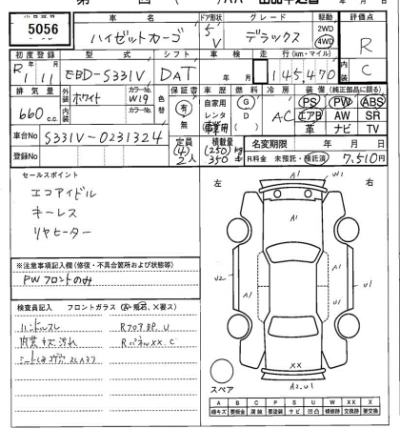 5056
車名 ドア形状 グレード 駆動 評価点
ハイゼットカーゴ 5 V デラックス 2WD 4WD R
初度登録 型式 シフト 車検 走行(km・マイル) 内装
R1 11 EBD-S331V DAT 年 月 145,470 C
排気量 外装 カラーNo. 色替 保証書 車歴 燃料 冷房 装備
660 cc ホワイト W19 有 無 自家用 レンタ 事業用 G D AC PS PW ABS
エアB AW SR
革 ナビ TV
内装 カラーNo.
車台No S331V-0231324 定員 (4) 2人 積載量 (250) 350 kg 名変期限 年 月 日
登録No R料金 未預託・預託済 7,510円
セールスポイント 左 右
エコアイドル
キーレス
リヤヒーター
A1 U1
A1
U2 A1 A1 U1
※注意事項記入欄(修復・不具合箇所および状態等)
PWフロントのみ
検査員記入 フロントガラス
ハンドルスレ Rフロア凹, U
内装キズ汚れ RパネルXX, C
XX
スペア A2,U1
A B C P S U W X XX
線キズ